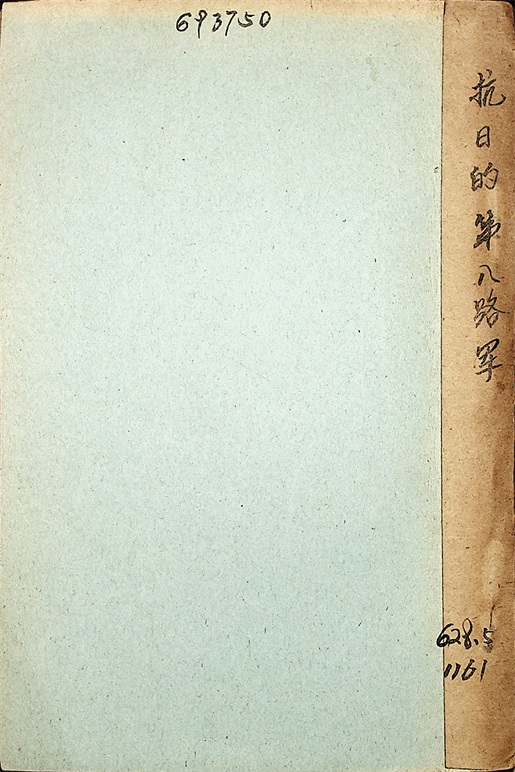 693750
抗日的第八路軍
628.5
1161